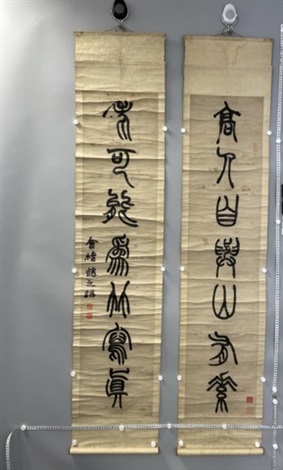 高人自與山有素
老可能爲竹寫眞
會稽趙之謙